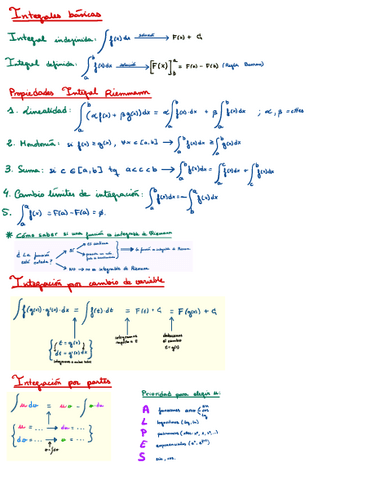 Integrales básicas
Integral indefinida: ∫f(x)dx ⟶ F(x) + C
Integral definida: ∫_a^b f(x)dx ⟶ [F(x)]_b^a = F(b) - F(a) (Regla Barrow)
Propiedades Integral Riemmann
1. Linealidad: ∫_a^b (αf(x) + βg(x))dx = α∫_a^b f(x)·dx + β∫_a^b g(x)dx ; α, β = ctes
2. Monotonía: si f(x) ≥ g(x), ∀x ∈ [a,b] ⟶ ∫_a^b f(x)dx ≥ ∫_a^b g(x)dx
3. Suma: si c ∈ [a,b] tq a<c<b ⟶ ∫_a^b f(x)dx = ∫_a^c f(x)dx + ∫_c^b f(x)dx
4. Cambio límites de integración: ∫_a^b f(x)dx = -∫_b^a f(x)dx
5. ∫_a^a f(x) = F(a) - F(a) = ∅.
* Cómo saber si una función es integrable de Riemann
¿La función está acotada?
SI
NO ⟶ no es integrable de Riemann
Integración por cambio de variable
∫f(g(x))·g'(x)·dx = ∫f(t)·dt = F(t) + C = F(g(x)) + C
t = g(x)
dt = g'(x)dx
integramos respecto a t
deshacemos el cambio t = g(x)
Integración por partes
∫u dv = u·v - ∫v·du
u = ... ⟶ du = ...
dv = ... ⟶ v = ...
v = ∫dv
Prioridad para elegir u:
A funciones arco
L logaritmos
P polinomios
E exponenciales
S sin, cos.